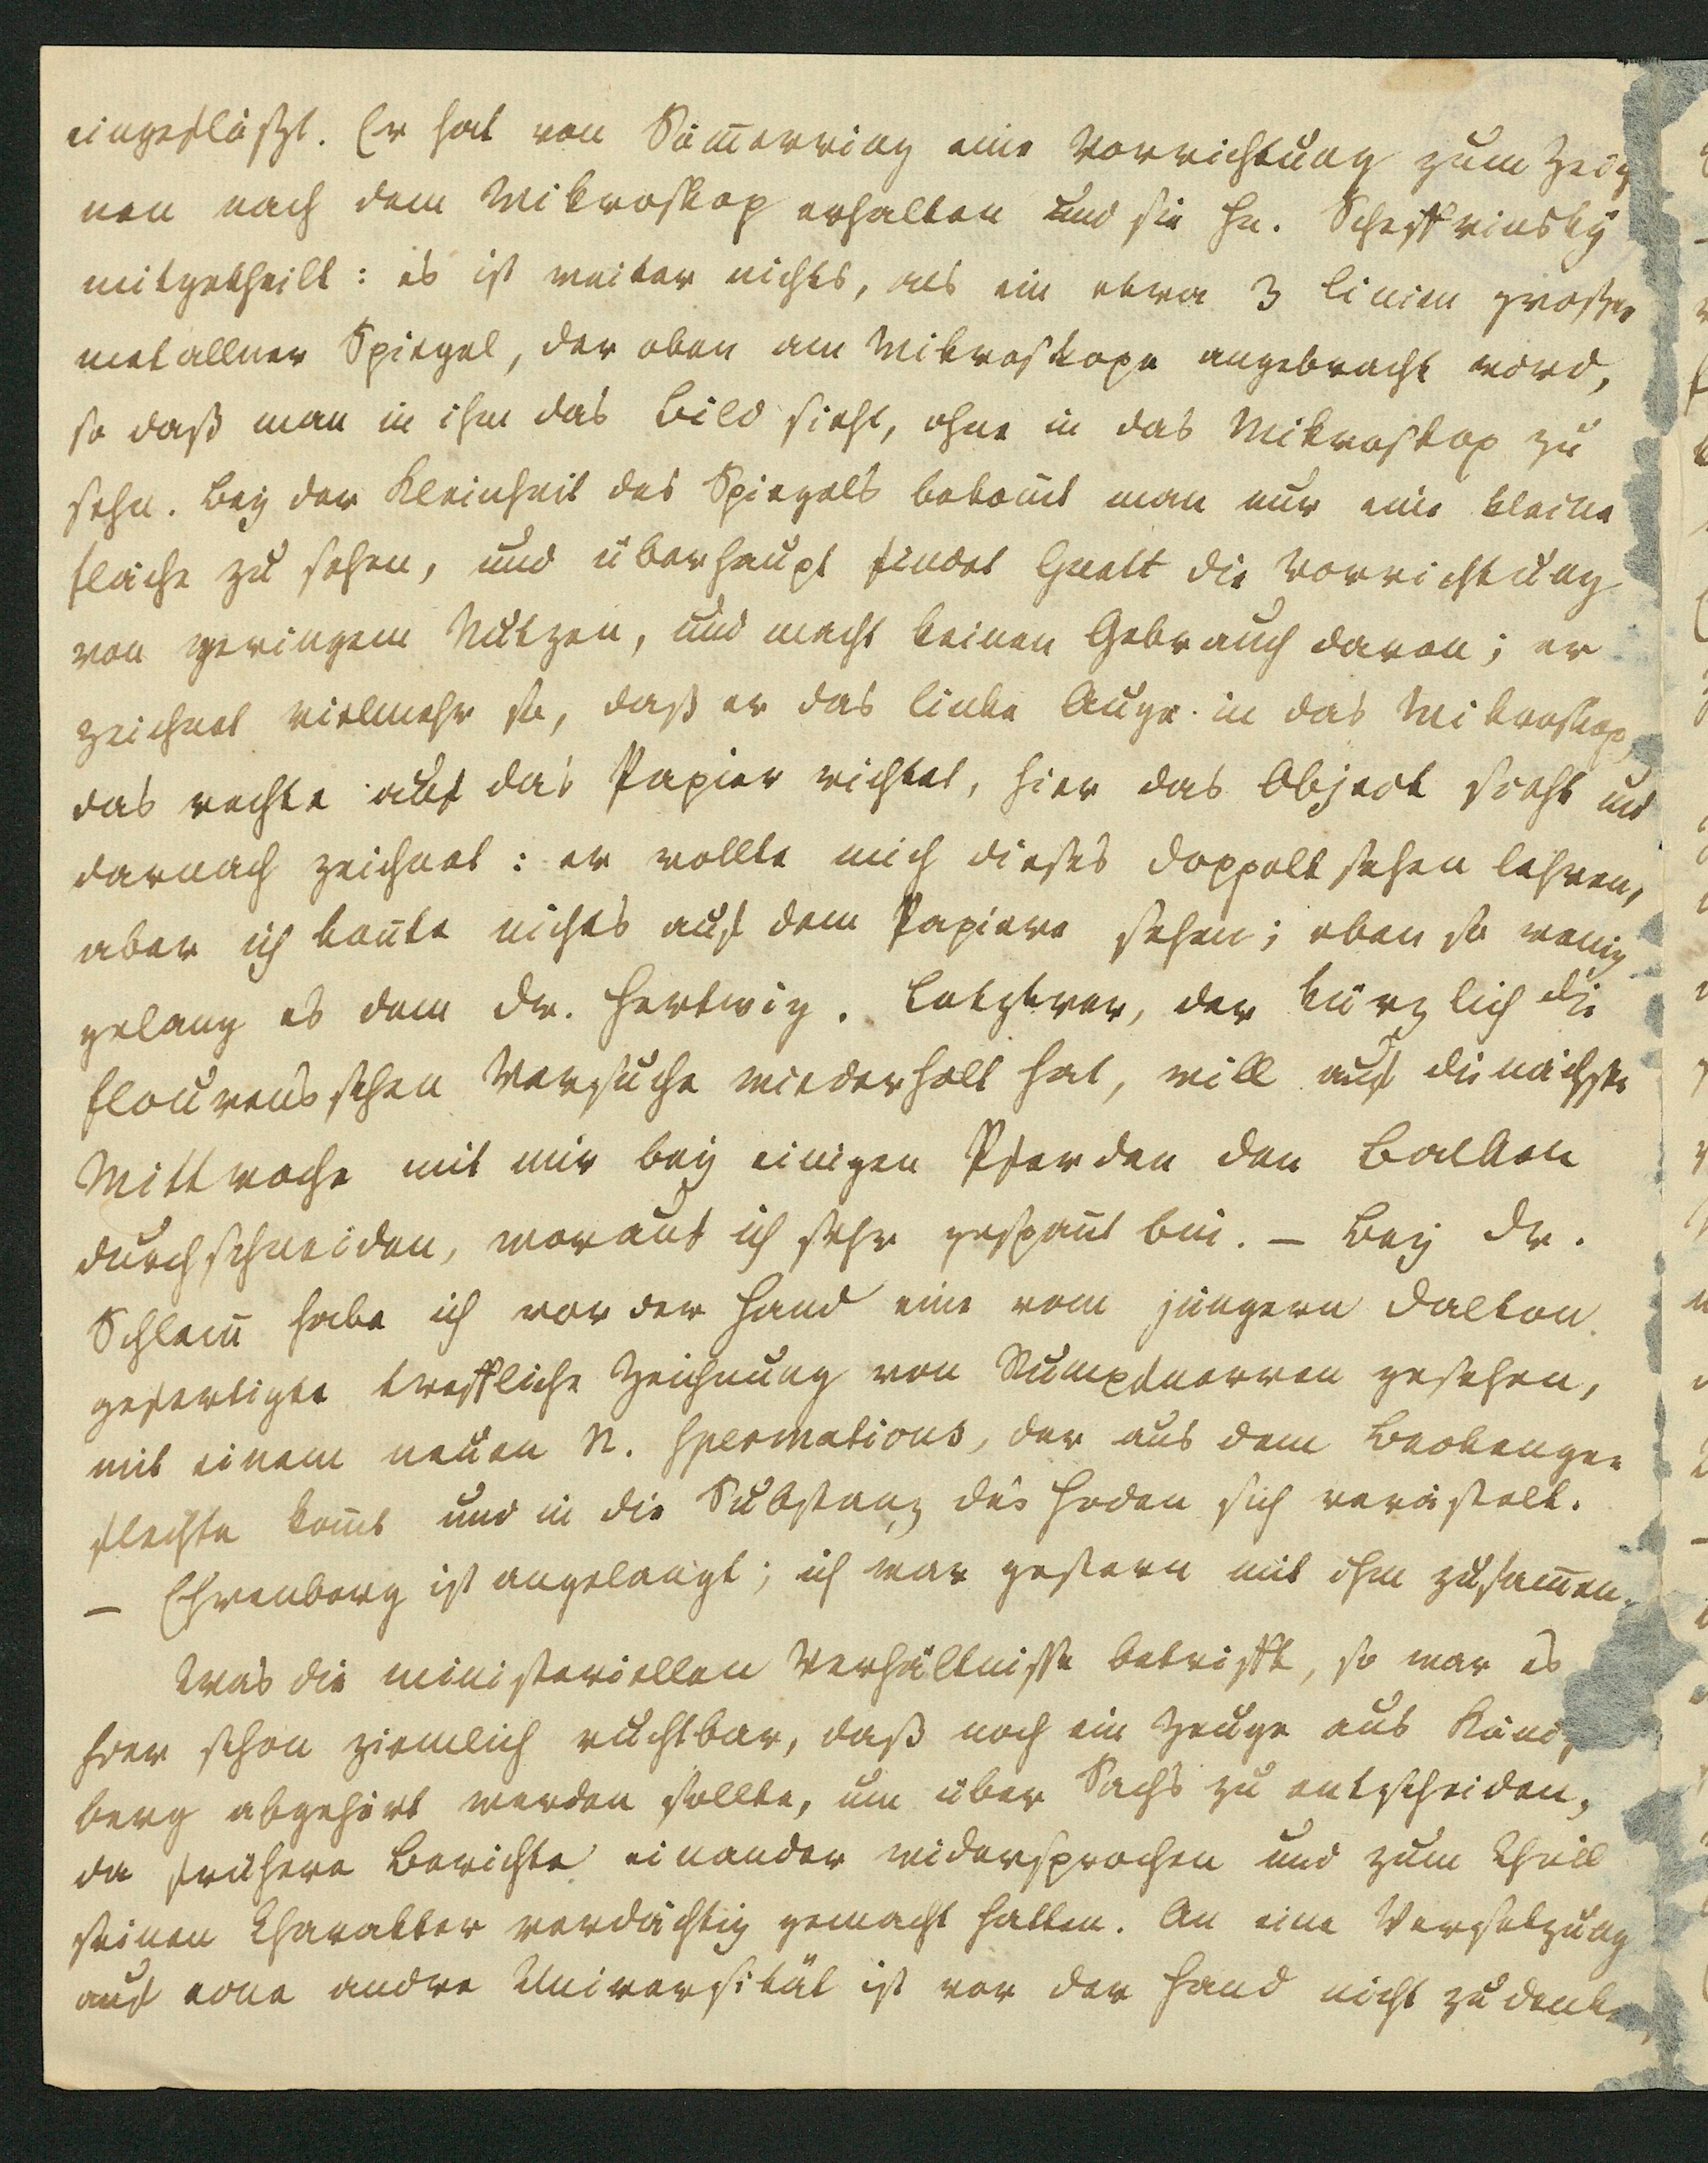 eingeflößt. Er hat von Sömmerring eine Vorrichtung zum Zeich
nen nach dem Mikroskop erhalten und sie Hn.
mitgetheilt: es ist weiter nichts, als ein etwa 3 Linien großer
metallner Spiegel, der oben am Mikroskope angebracht wird,
so daß man in ihm das Bild sieht, ohne in das Mikroskop zu
sehn. Bey der Kleinheit des Spiegels bekom̄t man nur eine kleine
Fläche zu sehen, und überhaupt findet Gurlt die Vorrichtung
von geringem Nutzen, und macht keinen Gebrauch davon; er
zeichnet vielmehr so, daß er das linke Auge in das Mikroskop,
das rechte auf das Papier richtet, hier das Object sieht und
darnach zeichnet: er wollte mich dieses doppelt sehen lehren,
aber ich kon̄te nichts auf dem Papiere sehen; eben so wenig
gelang es dem Dr. Hertwig. Letztrer, der kürzlich die
Flourensschen Versuche wiederholt hat, will auf die nächste
Mittwoche mit mir bey einigen Pferden den Balken
durchschneiden, worauf ich sehr gespan̄t bin. – Bey Dr.
Schlem̄ habe ich vor der Hand eine vom jüngern Dalton
gefertigte treffliche Zeichnung von Rumpfnerven gesehen,
mit einem neuen N. spermaticus, der aus dem Beckenge-
flechte kom̄t und in die Substanz des Hoden sich verästelt.
– Ehrenberg ist angelangt; ich war gestern mit ihm zusam̄en.
Was die ministeriellen Verhältnisse betrifft, so war es
hier schon ziemlich ruchtbar, daß noch ein Zeuge aus Königs
berg abgehört werden sollte, um über Sachs zu entscheiden,
da frühere Berichte einander widersprochen und zum Theil
seinen Charakter verdächtig gemacht hatten. An eine Versetzung
auf eine andre Universität ist vor der Hand nicht zu denken,